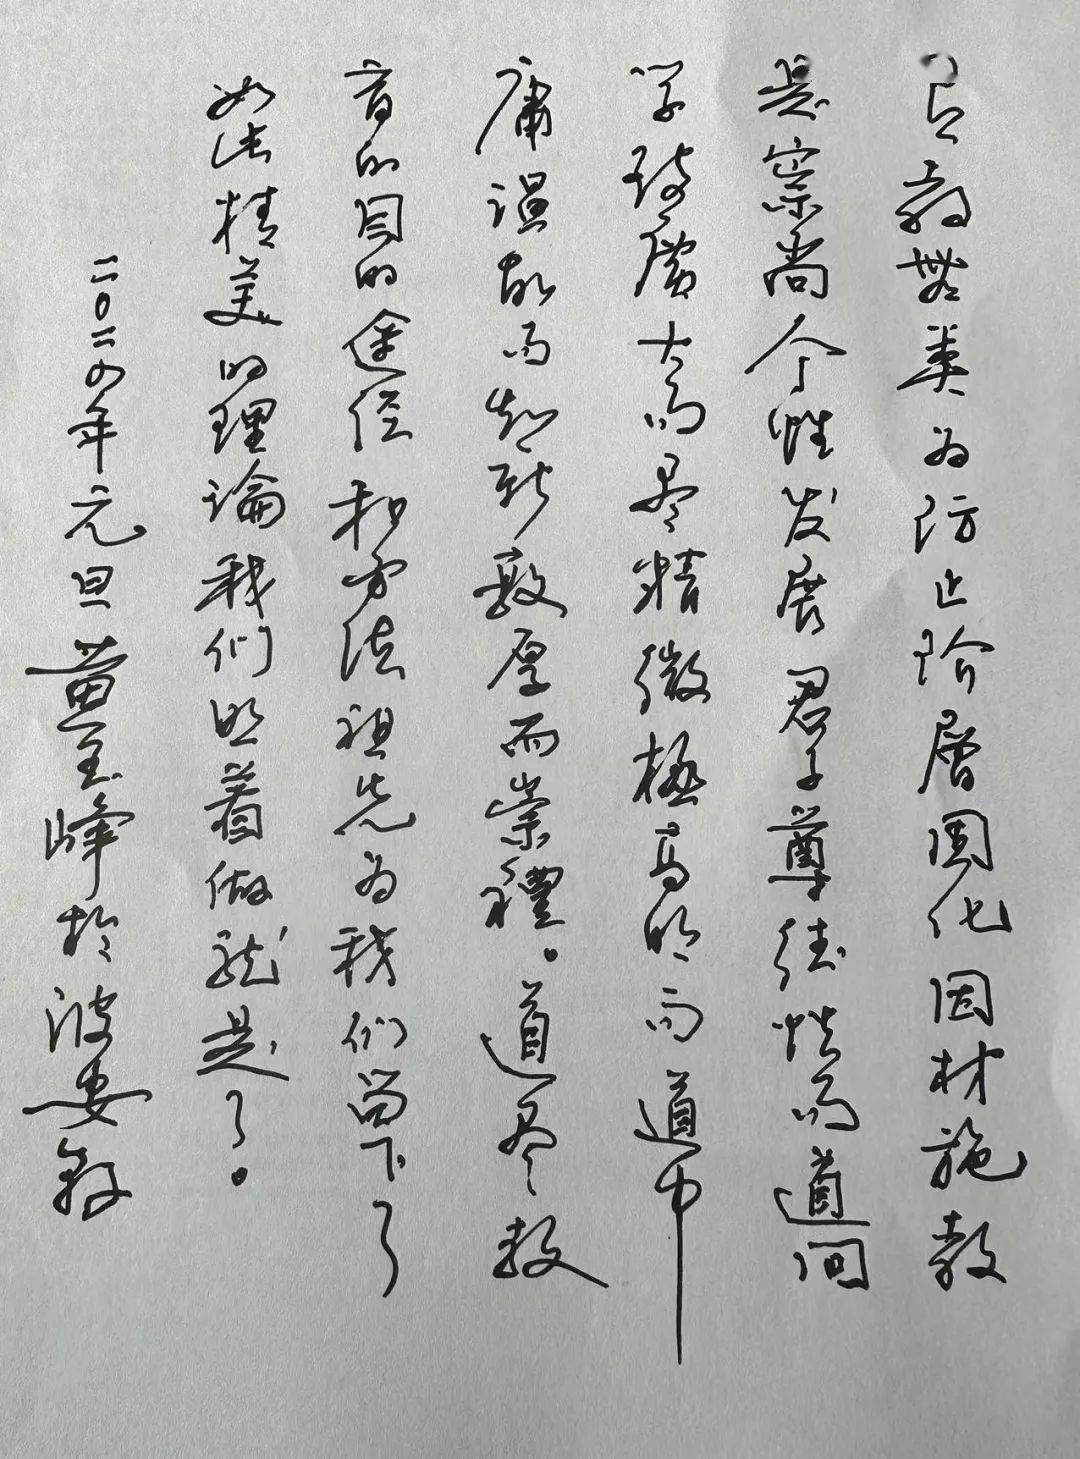 有教無类为防止阶層固化因材施教
是崇尚个性发展君子尊德性而道问
学致廣大而尽精微極高明而道中
庸温故而知新敦厚而崇禮。道尽教
育的目的途径和方法祖先为我们留下了
如此精美的理論我们照着做就是了。
二〇二四年元旦黄玉峰於波